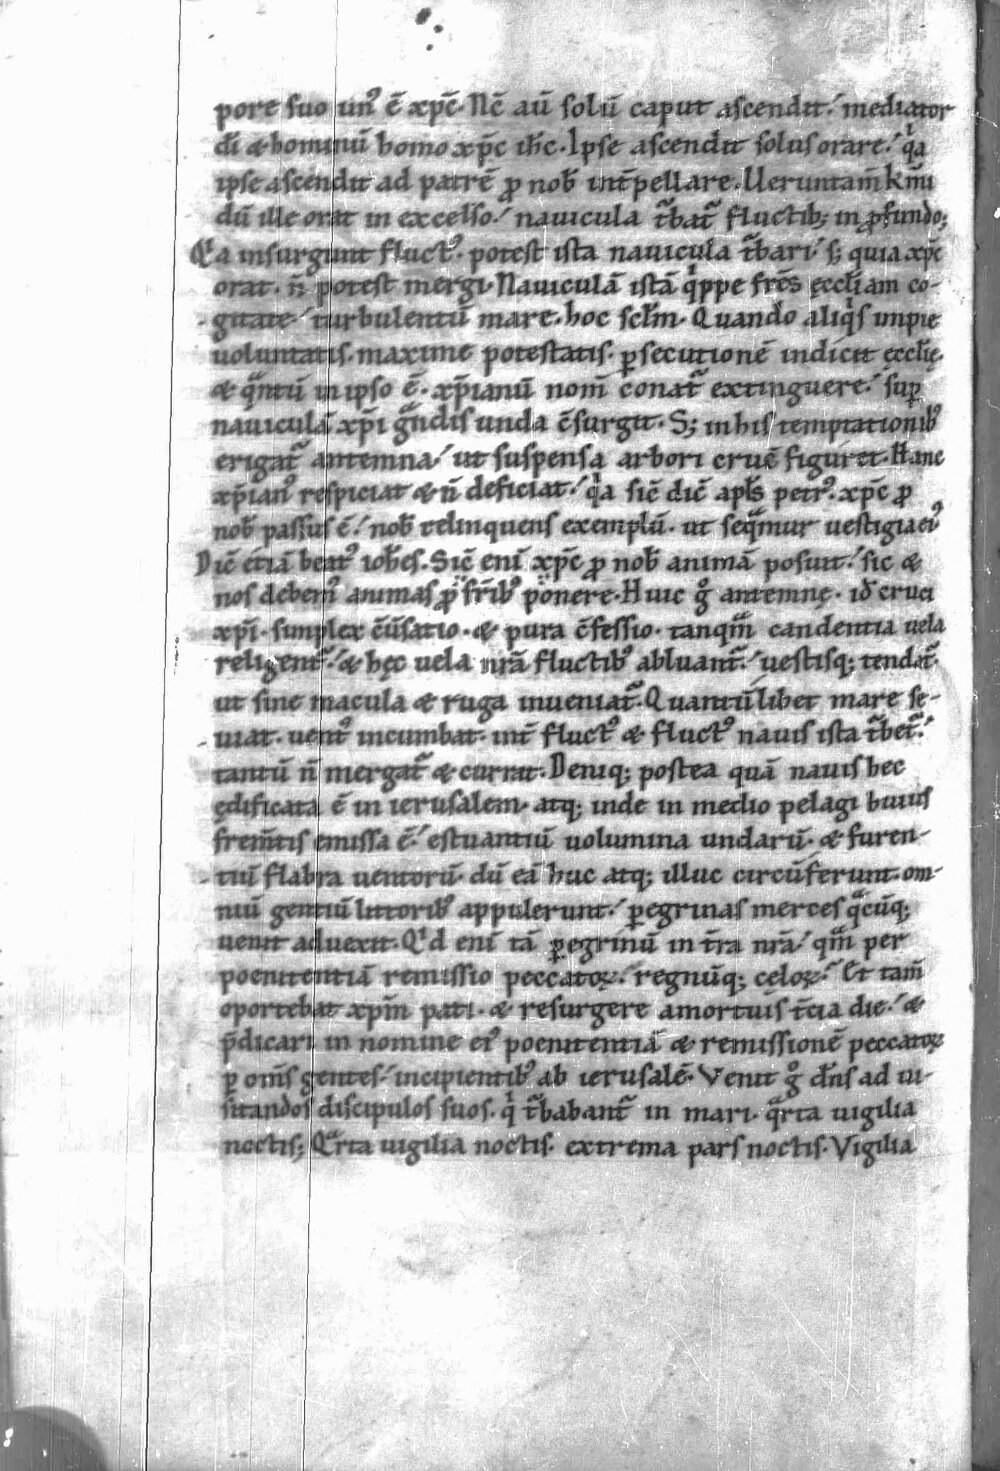 pore suo un᷒ ē xp̄c. Nc̄ aū solū caput ascendit / mediator
dī & hominū homo xp̄c ih̄c. Ipse ascendit solus orare / qͥa
ipse ascendit ad patrē ꝑ nob̄ int̄pellare. Ueruntam̄ k̄mi
dū ille orat in excelso / nauicula t̄bat̄ fluctib; in ꝓfundo;
Qͥa insurgunt fluct᷒. potest ista nauicula t̄bari / s; quia xp̄c
orat. n̄ potest mergi. Nauiculā istā qͥppe fr̄s ęccłiam co-
gitate / turbulentū mare. hoc scłm. Quando aliqͥs impie
uoluntatis. maxime potestatis. ꝑsecutionē indicit ęccłię.
& qͣntū in ipso ē. xp̄ianū nom̄ conat̄ extinguere / suꝑ
nauiculā xp̄i gͣndis unda c̄surgit. S; in his temptationib᷒
erigat̄ antemna / ut suspensa arbori crucē figuret. Hanc
xp̄ian᷒ respiciat & n̄ deficiat / qͥa sic̄ dic̄ apłs petr᷒. xp̄c ꝓ
nob̄ passus ē / nob̄ relinquens exemplū. ut seqͣmur uestigia ei᷒
Dic̄ etiā beat᷒ ioh̄es. Sic̄ eni xp̄c ꝓ nob̄ animā posuit / sic &
nos debem᷒ animas ꝓ fr̄ib᷒ ponere. Huic gͦ antemnę. id̄ cruci
xp̄i. simplex c̄ūsatio. & pura c̄fessio. tanqͣm candentia uela
religent̄ / & hęc uela nr̄a fluctib᷒ abluant̄ / uestisq; tendat̄.
ut sine macula & ruga inueniat̄. Quantūlibet mare se-
uiat. uent᷒ incumbat. int̄ fluct᷒ & fluct᷒ nauis ista t̄bet̄ /
tantū n̄ mergat̄ & currat. Deniq; postea quā nauis hec
ędificata ē in ierusalem. atq; inde in medio pelagi huius
frem̄tis emissa ē / estuantiū uolumina undarū. & furen-
tiū flabra uentorū. dū eā huc atq; illuc circūferunt. om-
niū gentiū littorib᷒ appulerunt / ꝑegrinas merces qͣcūq;
uenit aduexit. Qͥd eni tā ꝑegrinū in t̄ra nr̄a / qͣm per
poenitentiā remissio peccatoꝝ / regnūq; celoꝝ / Et tam̄
oportebat xp̄m pati. & resurgere a mortuis t̄cia die / &
p̄dicari in nomine ei᷒ poenitentiā & remissionē peccatoꝝ
ꝑ om̄s gentes / incipientib᷒ ab ierusalē. Venit gͦ dn̄s ad ui-
sitandos discipulos suos. qͥ t̄babant̄ in mari. qͣrta uigilia
noctis; Qͣrta uigilia noctis. extrema pars noctis. Vigilia